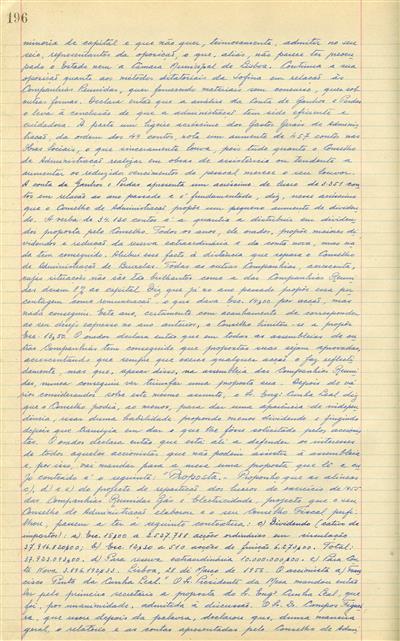 196
minoria de capital e que não quer, teimosamente, admitir no seu
seio, representantes da oposição, o que, aliás, não parece ter preocu-
pado o Estado nem a Câmara Municipal de Lisboa. Continua a sua
oposição quanto aos métodos ditatoriais da Sofina em relação às
Companhias Reunidas, quer fornecendo materiais sem concurso, quer sob
outras formas. Declara então que a análise da conta de Ganhos e Perdas
o leva à conclusão de que a administração tem sido eficiente e
cuidadosa. À parte um ligeiro acréscimo dos Gastos Gerais de Adminis-
tração, da ordem dos 44 contos, nota um aumento de 457 contos nas
Obras Sociais, o que sinceramente louva, pois tudo quanto o Conselho
de Administração realizar em obras de assistência ou tendente a
aumentar os reduzidos vencimentos do pessoal merece o seu louvor.
A conta de Ganhos e Perdas apresenta um acréscimo de lucro de 2.351 con-
tos em relação ao ano passado e é fundamentado, diz, nesse acréscimo
que o Conselho de Administração propõe um pequeno aumento de dividen-
do. A verba de 34.120 contos é a quantia a distribuir em dividen-
dos proposta pelo Conselho. Todos os anos, ele orador, propõe maiores di-
videndos e redução da reserva extraordinária e da conta nova, mas na-
da tem conseguido. Atribui esse facto à distância que separa o Conselho
de Administração de Bruxelas. Todas as outras Companhias, acrescenta,
cujas situações não são tão brilhantes como a das Companhias Reuni-
das deram 8% ao capital. Diz que já no ano passado propôs essa per-
centagem como remuneração, o que dava Esc. por acção, mas
nada conseguiu. Este ano, certamente com acanhamento de corresponder
ao seu desejo expresso no ano anterior, o Conselho limitou-se a propôr
Esc. O orador declara então que em todas as assembleias de ou-
tras Companhias tem conseguido que propostas suas sejam aprovadas,
acrescentando que sempre que exerce qualquer acção o faz reflecti-
damente, mas que, apesar disso, na assembleia das Companhias Reuni-
das, nunca conseguiu ver triunfar uma proposta sua. Depois de vá-
rios considerandos sobre este mesmo assunto, o Sr. Engº Cunha Leal diz
que o Conselho podia, ao menos, para dar uma aparência de indepen-
dência, usar duma habilidade, propondo menos dividendo e fingindo
depois que transigia em dar o que lhe fosse solicitado pelos accionis-
tas. O orador declara então que está ali a defender os interesses
de todos aqueles accionistas que não podem assistir à assembleia
e, por isso, vai mandar para a mesa uma proposta que lê e cu-
jo conteúdo é o seguinte: "Proposta. Proponho que as alíneas
c), d) e e) do projecto de repartição dos lucros do exercício de 1955
das Companhias Reunidas Gás e Electricidade, projecto que o seu
Conselho de Administração elaborou e o seu Conselho Fiscal perfi-
lhou, passem a ter a seguinte contextura: c) Dividendo (cativo de
impostos): a) Esc. acções ordinárias em circulação
b) Esc. acções de fruição Total:
d) Para reserva extraordinária 10.000.000$00. e) Para Con-
ta Nova Lisboa, 28 de Março de 1956. O accionista a) Fran-
cisco Pinto da Cunha Leal". O Sr. Presidente da Mesa mandou então
ler pelo primeiro secretário a proposta do Sr. Engº Cunha Leal, que
foi, por unanimidade, admitida à discussão. O Sr. Dr. Campos Figuei-
ra, que usou depois da palavra, declarou que, duma maneira
geral, o relatório e as contas apresentadas pelo Conselho de Admi-